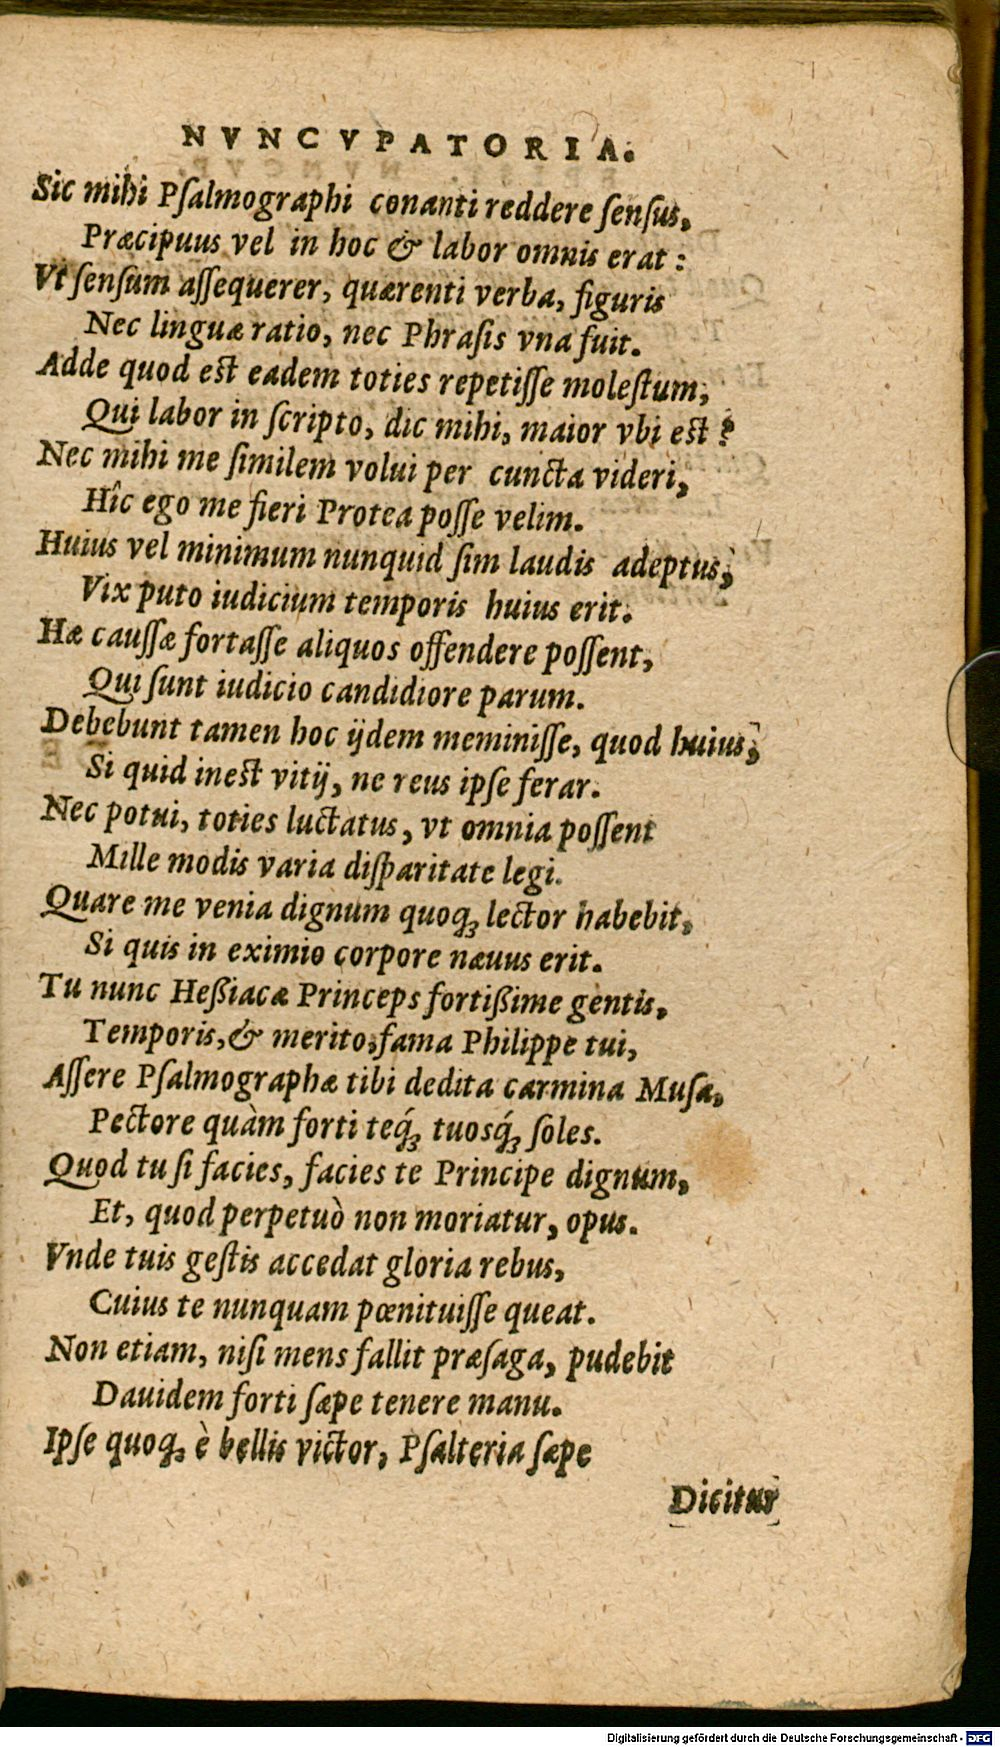 NVNCVPATORIA.
Sic mihi Pſalmographi conanti reddere ſenſus,
Præcipuus vel in hoc & labor omnis erat:
Vt ſenſum aſſequerer, quærenti verba, figuris
Nec linguæ ratio, nec Phraſis vna fuit.
Adde quod est eadem toties repetiſſe moleſtum,
Qui labor in ſcripto, dic mihi, maior vbi est?
Nec mihi me ſimilem volui per cuncta videri,
Hîc ego me fieri Protea poſſe velim.
Huius vel minimum nunquid ſim laudis adeptus,
Vix puto iudicium temporis huius erit.
Hæ cauſſæ fortaſſe aliquos offendere poſſent,
Qui ſunt iudicio candidiore parum.
Debebunt tamen hoc ijdem meminiſſe, quod huius,
Si quid inest vitij, ne reus ipſe ferar.
Nec potui, toties luctatus, vt omnia poſſent
Mille modis varia diſparitate legi.
Quare me venia dignum quoq₃ lector habebit,
Si quis in eximio corpore næuus erit.
Tu nunc Heßiacæ Princeps fortißime gentis,
Temporis, & merito, fama Philippe tui,
Aſſere Pſalmographæ tibi dedita carmina Muſæ,
Pectore quàm forti teq́₃ tuosq́₃ ſoles.
Quod tu ſi facies, facies te Principe dignum,
Et, quod perpetuò non moriatur, opus.
Vnde tuis geſtis accedat gloria rebus,
Cuius te nunquam pœnituiſſe queat.
Non etiam, niſi mens fallit præſaga, pudebit
Dauidem forti ſæpe tenere manu.
Ipſe quoq₃ è bellis victor, Pſalteria ſæpe
Dicitur
Digitalisierung gefördert durch die Deutsche Forschungsgemeinschaft - DFG